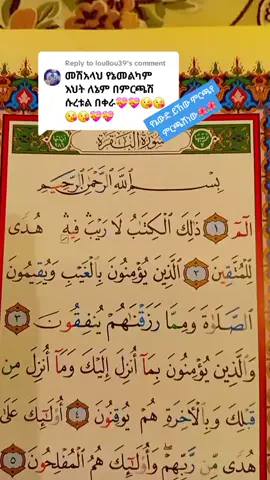 Reply to loullou39's comment
መሽአላህ የኔመልካም
እህት ለኔም በምርጫሽ
ሱረቱል በቀራ💝💝😘😘
😘😘💝💝
የኔውድ ይኸው ምርጫዬ
ምርጫሽ ነው
سُورَةُ الْبَقَرَةِ
بِسْمِ اللَّهِ الرَّحْمَٰنِ الرَّحِيمِ
الٓمٓ ١ ذَٰلِكَ الْكِتَٰبُ لَا رَيْبَ ۛ فِيهِ ۛ هُدًى
لِّلْمُتَّقِينَ ٢ الَّذِينَ يُؤْمِنُونَ بِالْغَيْبِ وَيُقِيمُونَ
الصَّلَوٰةَ وَمِمَّا رَزَقْنَٰهُمْ يُنفِقُونَ ٣
وَالَّذِينَ يُؤْمِنُونَ بِمَآ أُنزِلَ إِلَيْكَ وَمَآ أُنزِلَ مِن
قَبْلِكَ وَبِالْآخِرَةِ هُمْ يُوقِنُونَ ٤ أُولَٰٓئِكَ عَلَىٰ
هُدًى مِّن رَّبِّهِمْ ۖ وَأُولَٰٓئِكَ هُمُ الْمُفْلِحُونَ ٥